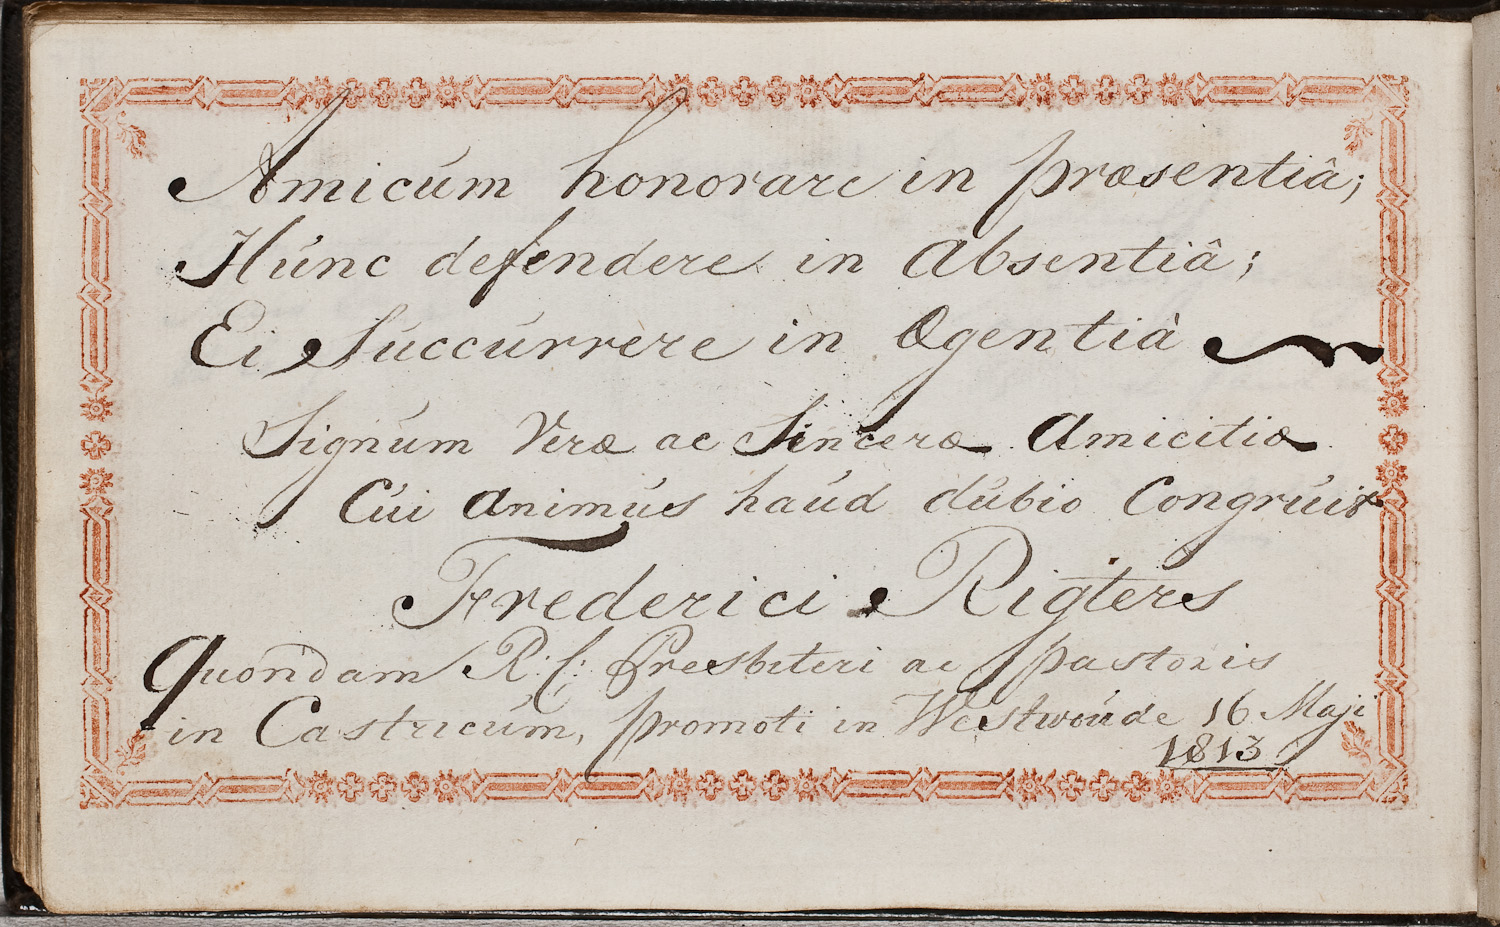 Amicúm honorare in præsentiâ;
Húnc defendere in Absentiâ;
Ei Súccúrrere in Egentiâ
Signúm Veræ ac Sinceræ Amicitiæ
Cúi Animús haúd dúbio Congrúit
Frederici Rigters
Quondam R: C: Presbiteri ac pastoris
in Castricúm, promoti in Westwoúde 16 Maji
1813